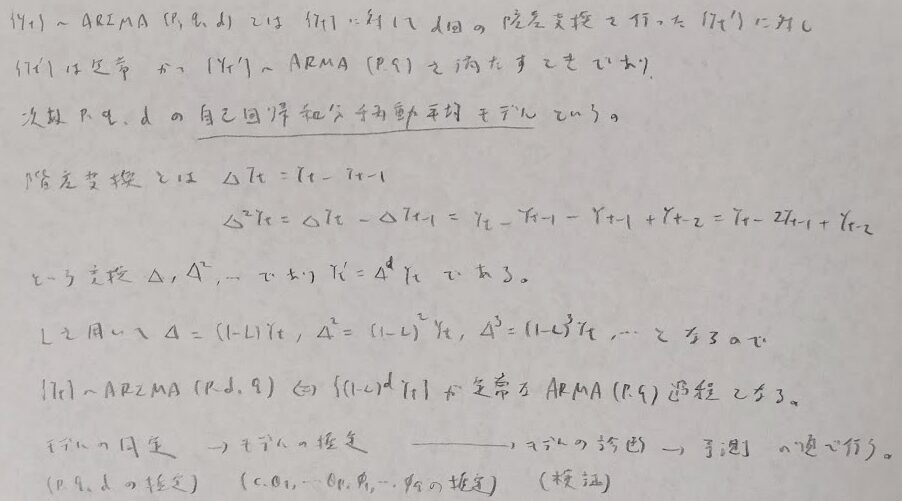 {Yt} ~ ARIMA (P, q, d) とは {Yt} に対して d回の 階差変換を行った {Yt'} に対し
{Yt'} は定常 かつ {Yt'} ~ ARMA (P.q) を満たすときであり
次数 P. q. d の 自己回帰和分移動平均モデルという。
階差変換とは ΔYt = Yt - Yt-1
Δ²Yt = ΔYt - ΔYt-1 = Yt - Yt-1 - Yt-1 + Yt-2 = Yt - 2Yt-1 + Yt-2
という変換 Δ, Δ², … であり Yt' = Δ^d Yt である。
Lを用いて Δ = (1-L)Yt, Δ² = (1-L)²Yt, Δ³ = (1-L)³Yt, … となるので
{Yt} ~ ARIMA (P.d.q) ⇔ {(1-L)^d Yt} が定常な ARMA (P.q) 過程となる。
モデルの同定 → モデルの推定 → モデルの診断 → 予測 の順で行う。
(P. q. d の推定) (c.θ1, … θp. φ1, … φq の推定) (検証)